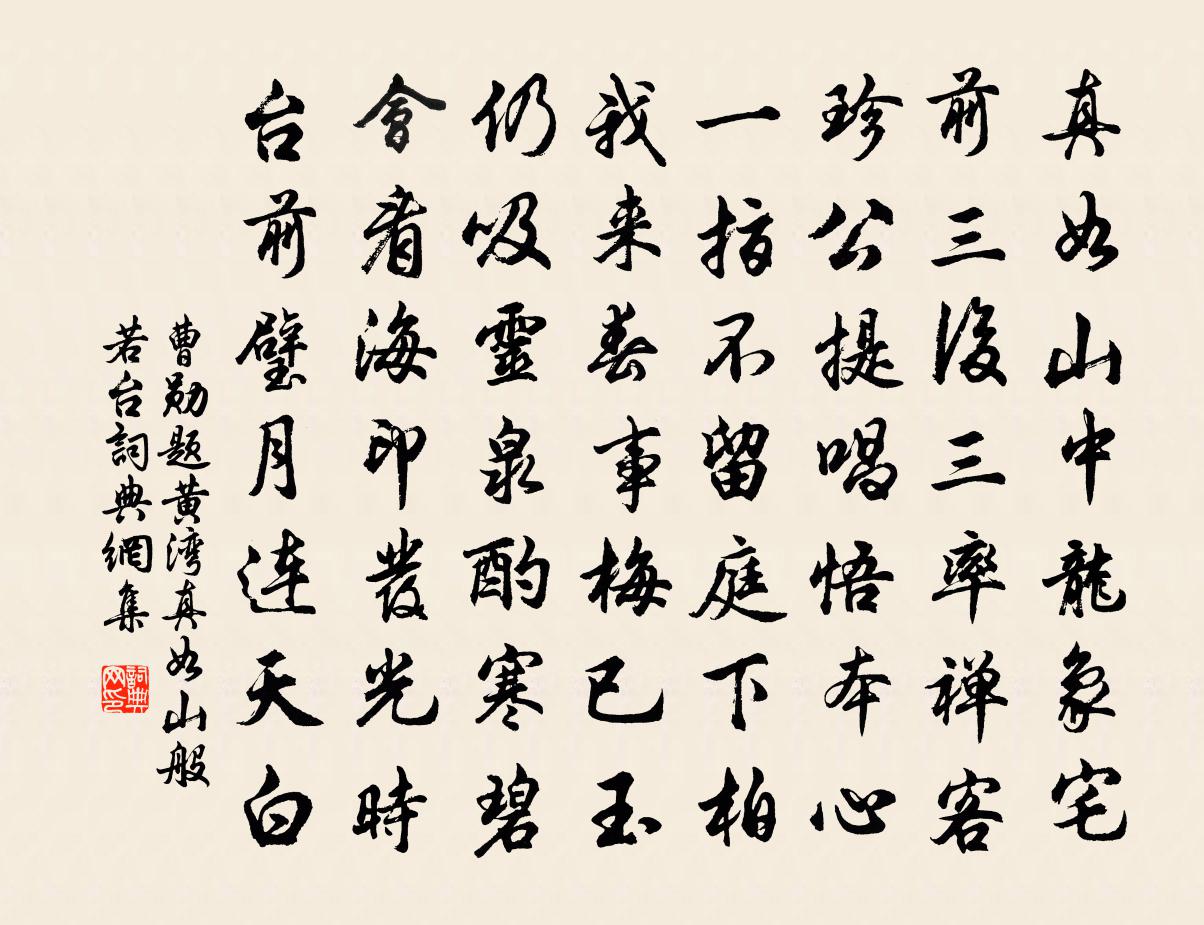 真如山中龍象宅
前三三後三三率禅客
珍公提唱悟本心
一指不留庭下柏
我来春事梅已玉
仍吸靈泉酌寒碧
會看海印發光時
台前璧月连天白
曹勋题黄湾真如山般
若台詞典網集
詞典网印